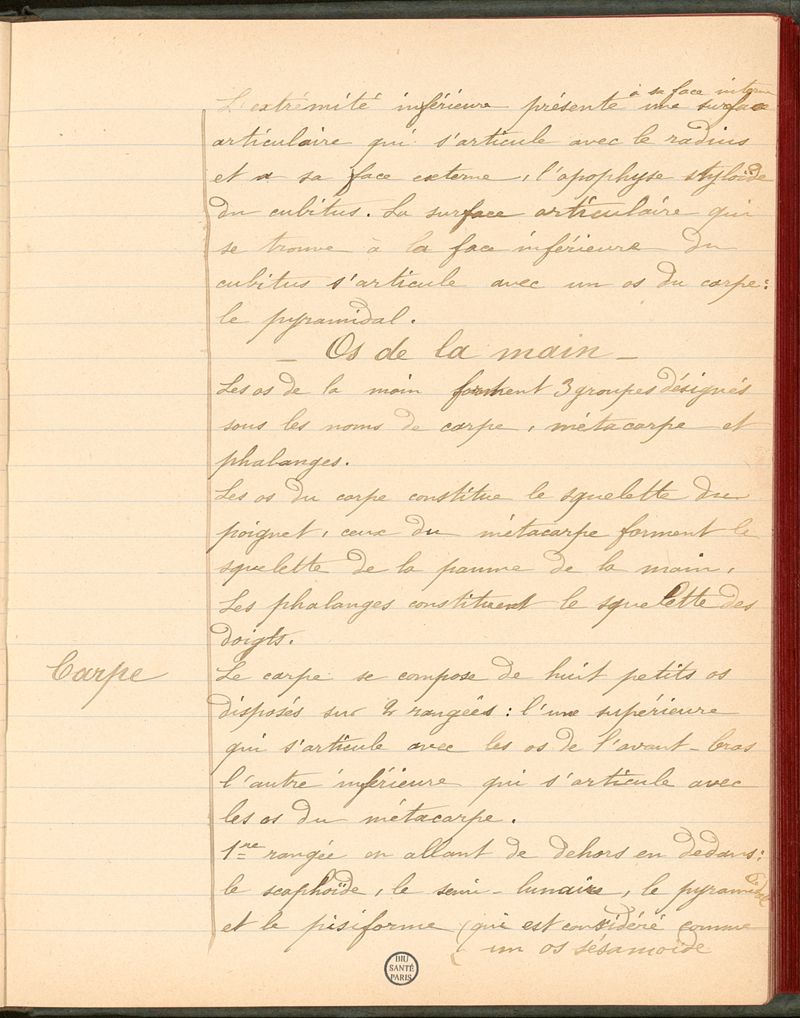 à sa face interne
L'extrémité inférieure présente une surface
articulaire qui s'articule avec le radius
et a sa face externe, l'apophyse styloïde
du cubitus. La surface articulaire qui
se trouve à la face inférieure du
cubitus s'articule avec un os du carpe :
le pyramidal.
– Os de la main –
Les os de la main forment 3 groupes désignés
sous les noms de carpe, métacarpe et
phalanges.
Les os du carpe constitue le squelette du
poignet, ceux du métacarpe forment le
squelette de la paume de la main,
Les phalanges constituent le squelette des
doigts.
Carpe
Le carpe se compose de huit petits os
disposés sur 2 rangées : l'une supérieure
qui s'articule avec les os de l'avant-bras
l'autre inférieure qui s'articule avec
les os du métacarpe.
1re rangée en allant de dehors en dedans :
le scaphoïde, le semi-lunaire, le pyramidal
et le pisiforme (qui est considéré comme
un os sésamoïde
BIU
SANTÉ
PARIS